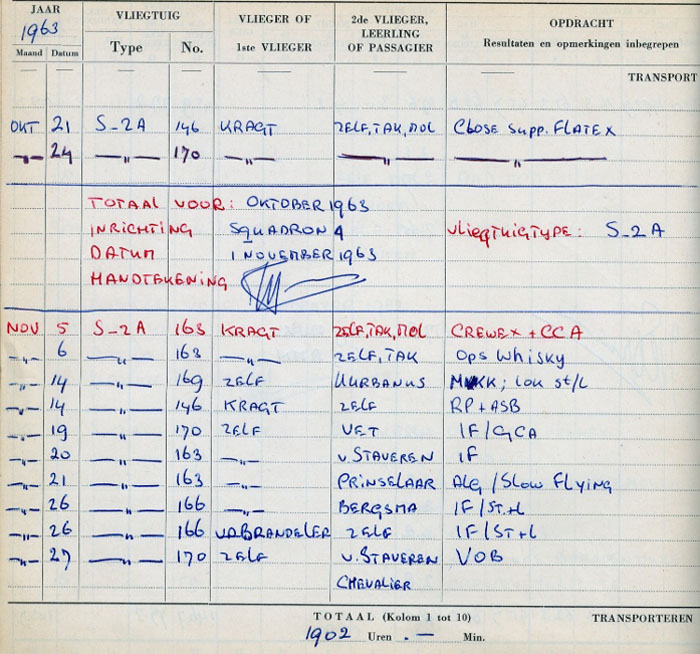 JAAR VLIEGTUIG VLIEGER OF 2de VLIEGER, OPDRACHT
1963 1ste VLIEGER LEERLING Resultaten en opmerkingen inbegrepen
Maand Datum Type No. OF PASSAGIER
TRANSPORT
OKT 21 S-2A 146 KRAGT ZELF, TAK, MOL Close Supp. FLATEX
—„— 24 —„— 170 —„— —„— —„—
TOTAAL VOOR: OKTOBER 1963
INRICHTING SQUADRON 4 VLIEGTUIGTYPE: S-2A
DATUM 1 NOVEMBER 1963
HANDTEKENING
NOV 5 S-2A 163 KRAGT ZELF, TAK, MOL CREWEX + CCA
—„— 6 —„— 163 —„— ZELF, TAK Ops Whisky
—„— 14 —„— 169 ZELF URBANUS MKK; LOK st/L
—„— 14 —„— 146 KRAGT ZELF RP + ASB
—„— 19 —„— 170 ZELF VET IF/GCA
—„— 20 —„— 163 —„— v. STAVEREN IF
—„— 21 —„— 163 —„— PRINSELAAR ALG/Slow FLYING
—„— 26 —„— 166 —„— BERGSMA IF/ST+L
—„— 26 —„— 166 V.D. BRANDELER ZELF IF/ST+L
—„— 27 —„— 170 ZELF v. STAVEREN VOB
CHEVALIER
TOTAAL (Kolom 1 tot 10) TRANSPORTEREN
1902 Uren . — Min.